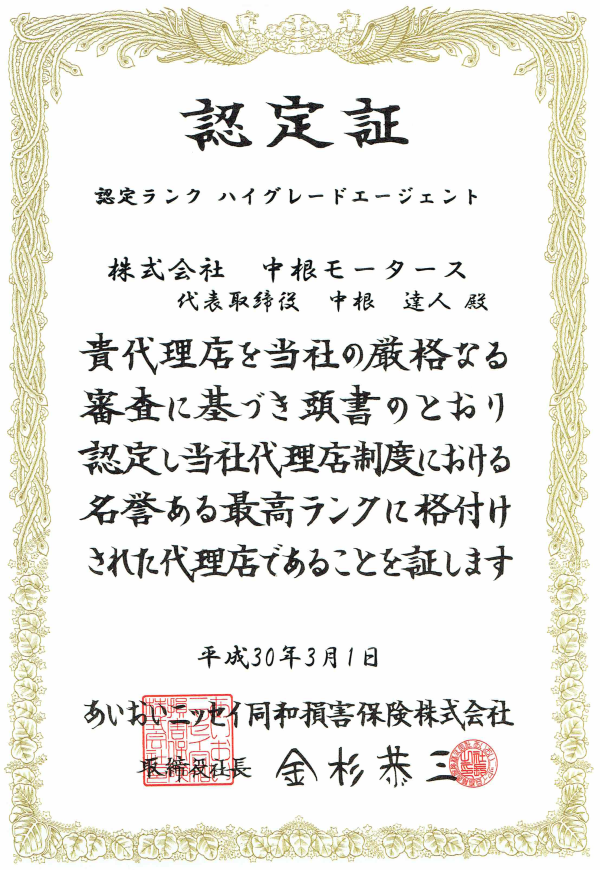 認定証
認定ランク ハイグレードエージェント
株式会社 中根モータース
代表取締役 中根 達人 殿
貴代理店を当社の厳格なる
審査に基づき頭書のとおり
認定し当社代理店制度における
名誉ある最高ランクに格付け
された代理店であることを証します
平成30年3月1日
あいおいニッセイ同和損害保険株式会社
取締役社長 金杉恭三